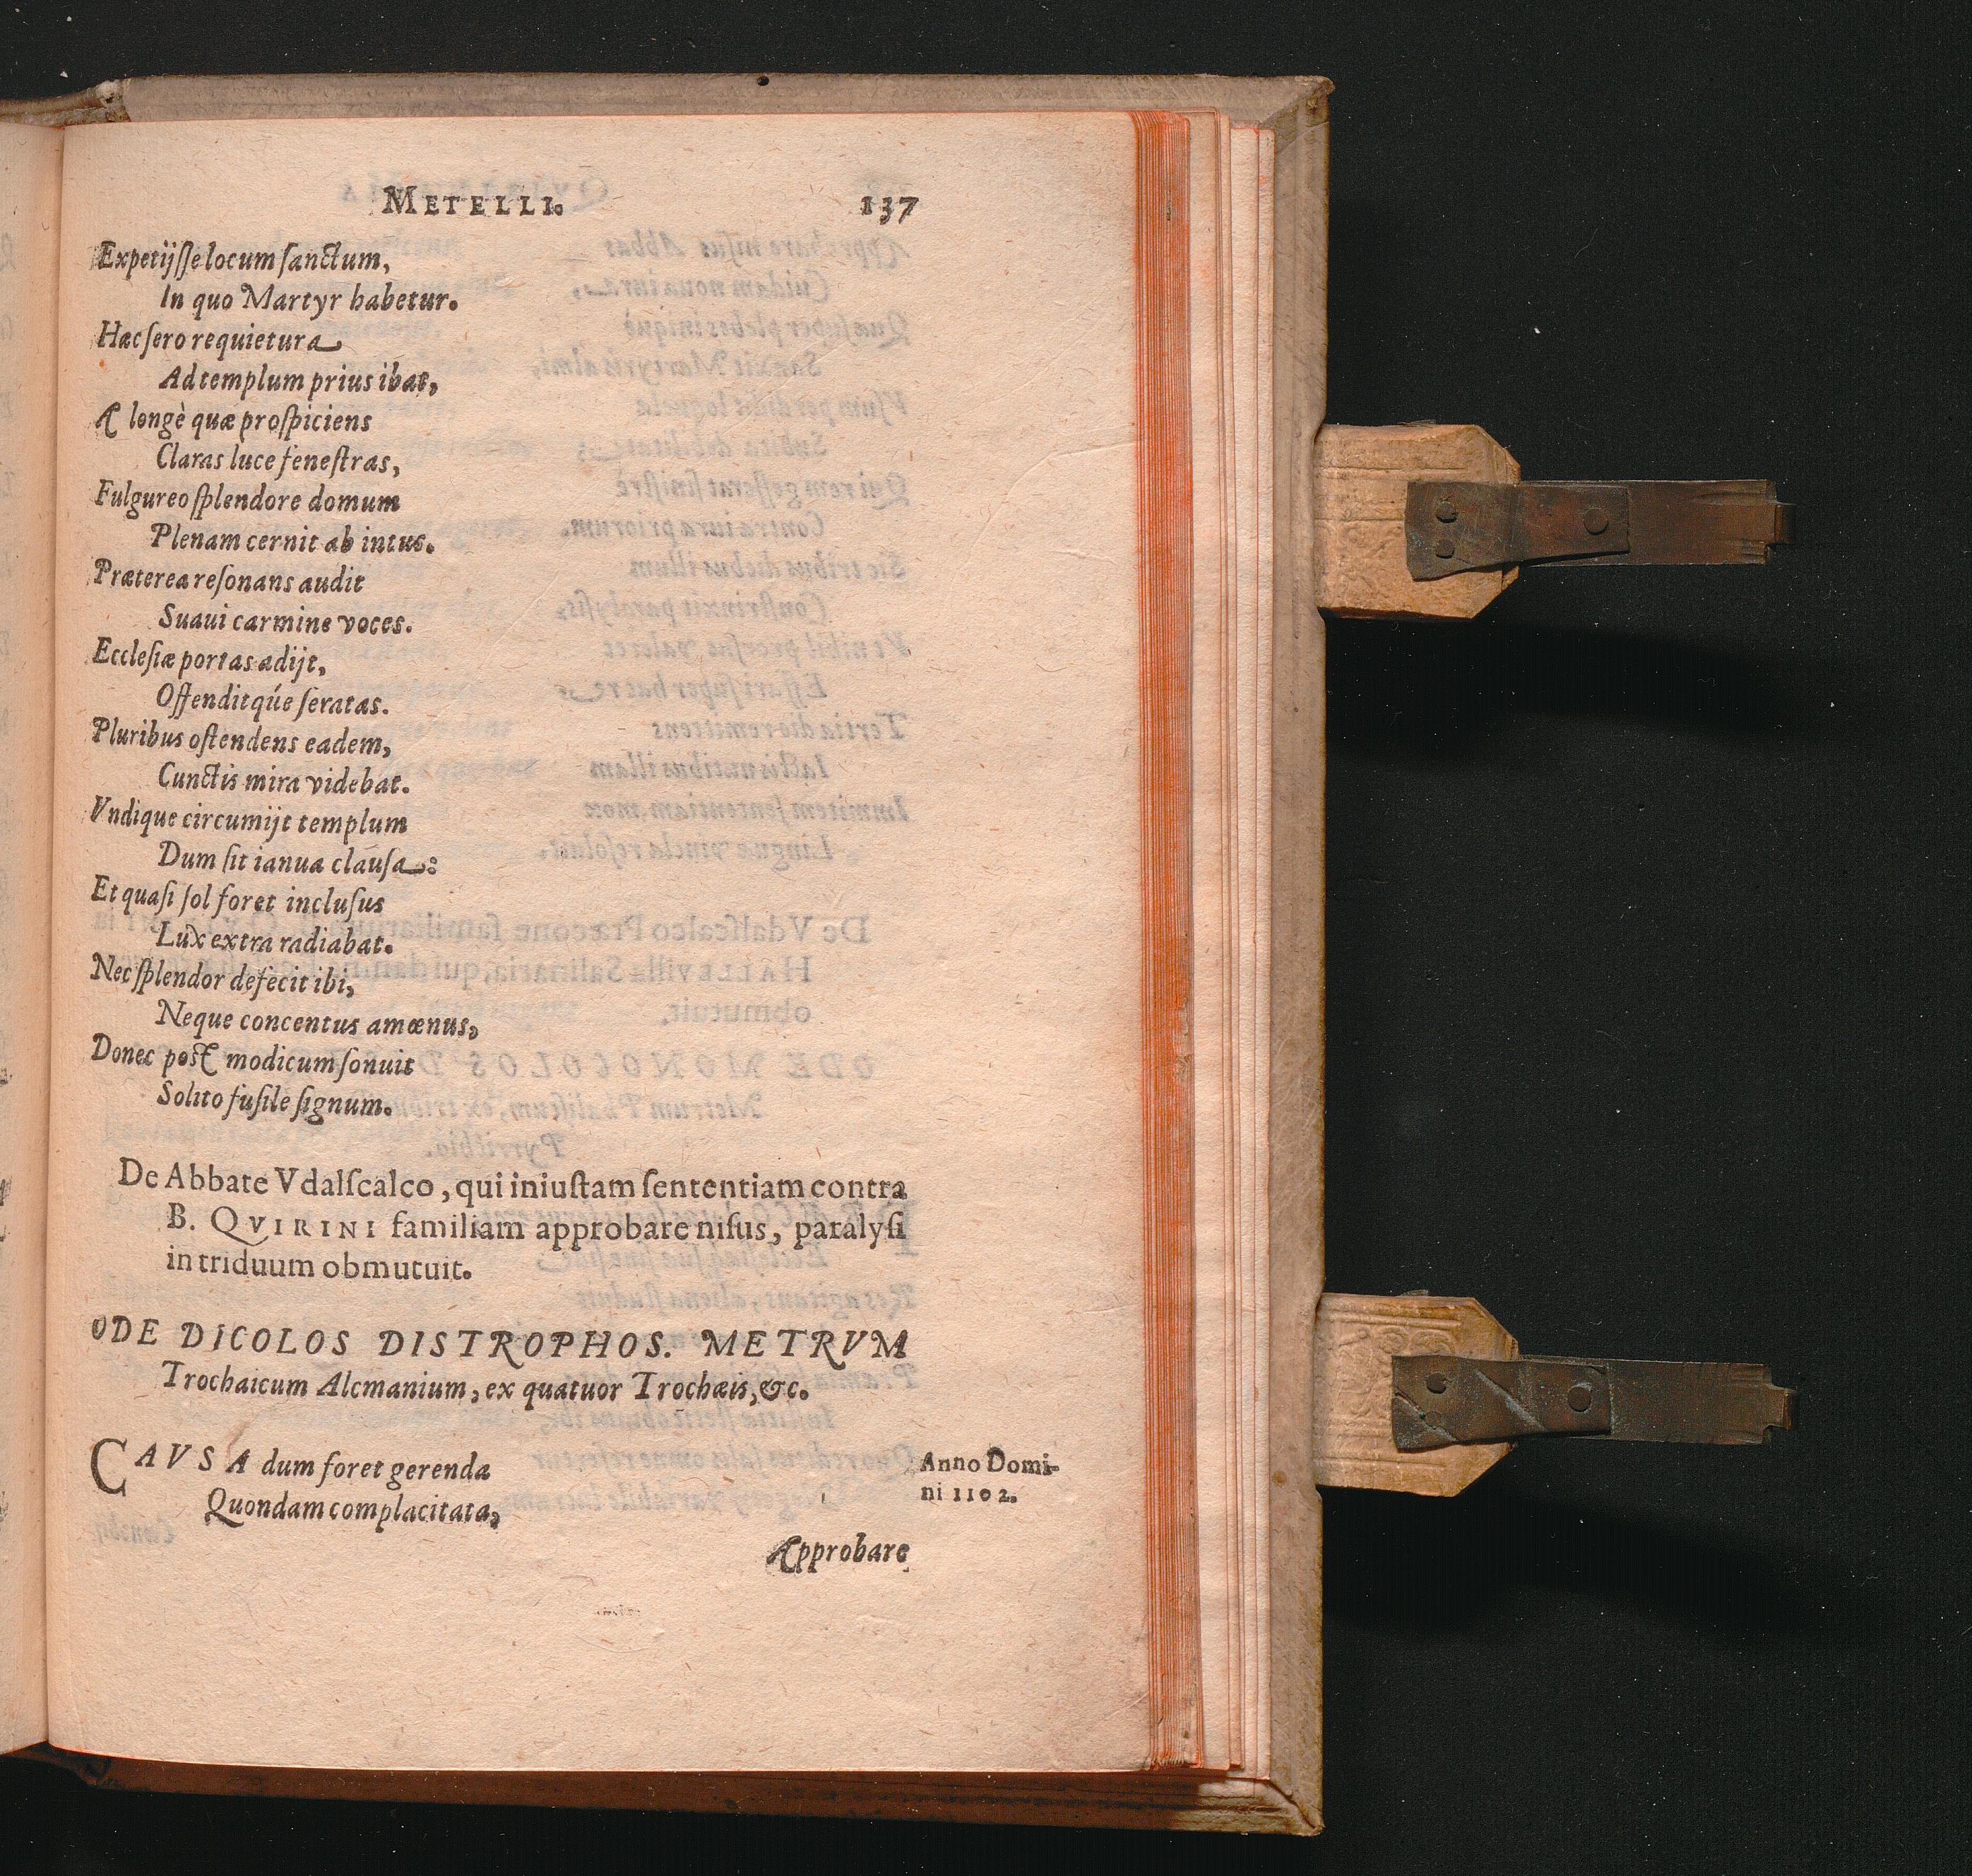 METELLI. 137
Expetijſſe locum ſanctum,
In quo Martyr habetur.
Hæc ſero requietura
Ad templum prius ibat,
A longè quæ proſpiciens
Claras luce feneſtras,
Fulgureo ſplendore domum
Plenam cernit ab intus.
Præterea reſonans audit
Suaui carmine voces.
Eccleſiæ portas adijt,
Offenditqúe ſeratas.
Pluribus oſtendens eadem,
Cunctis mira videbat.
Vndique circumijt templum
Dum ſit ianua clauſa:
Et quaſi ſol foret incluſus
Lux extra radiabat.
Nec ſplendor defecit ibi,
Neque concentus amœnus,
Donec post modicum ſonuit
Solito fuſile ſignum.
De Abbate Vdalſcalco, qui iniuſtam ſententiam contra
B. QVIRINI familiam approbare niſus, paralyſi
in triduum obmutuit.
ODE DICOLOS DISTROPHOS. METRVM
Trochaicum Alcmanium, ex quatuor Trochæis, &c.
CAVSA dum foret gerenda
Quondam complacitata,
Anno Domi-
ni 1102.
Approbare